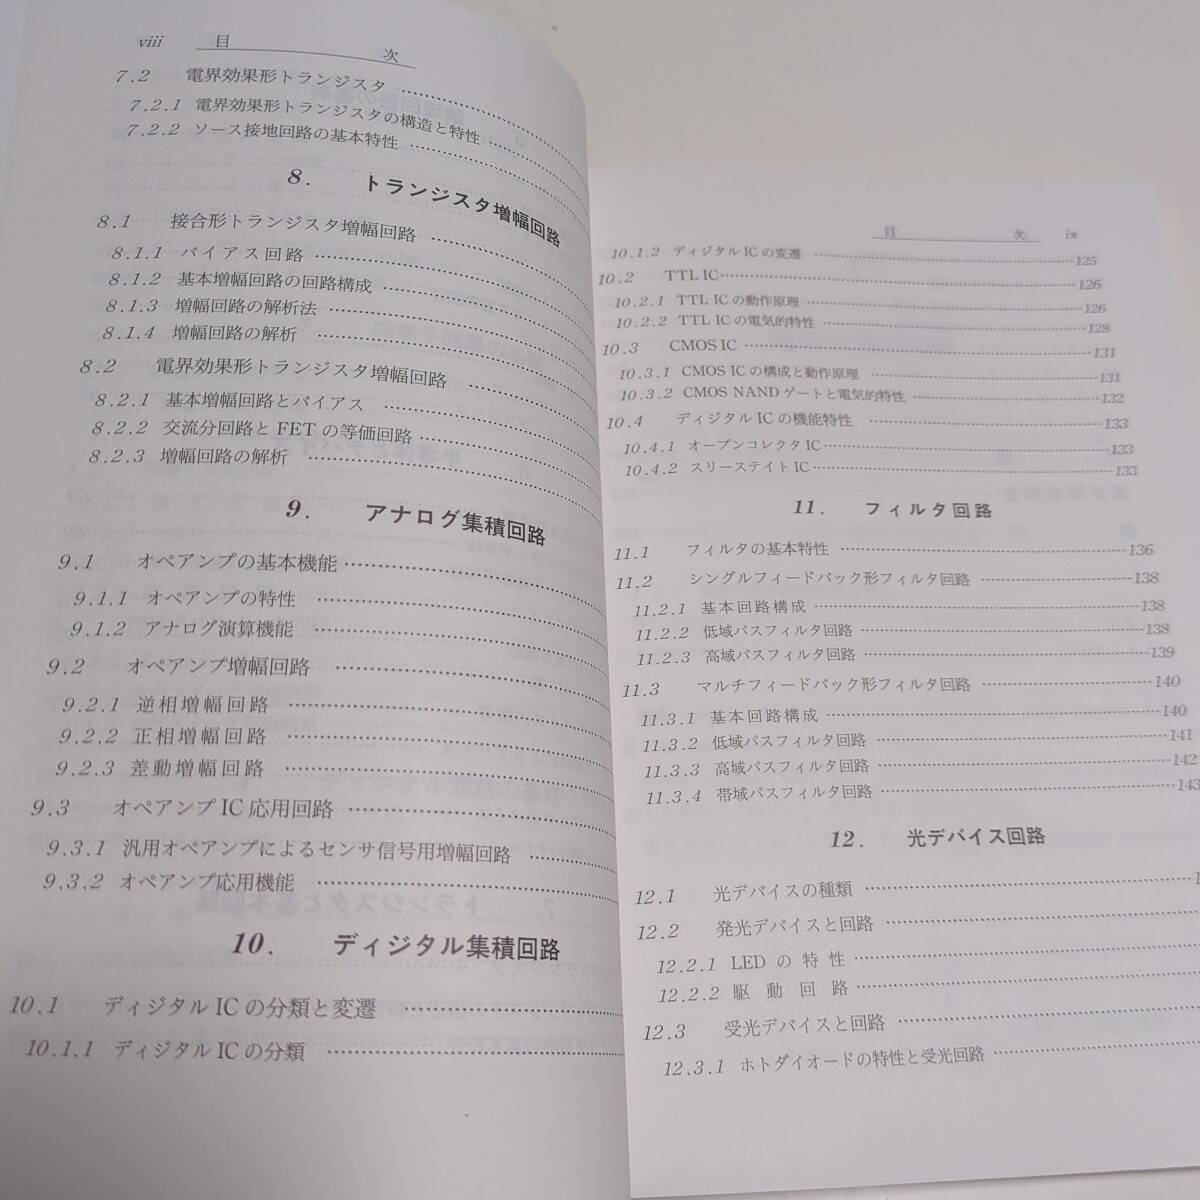 viii 目 次
7.2 電界効果形トランジスタ
7.2.1 電界効果形トランジスタの構造と特性
7.2.2 ソース接地回路の基本特性
8. トランジスタ増幅回路
8.1 接合形トランジスタ増幅回路
8.1.1 バイアス回路
8.1.2 基本増幅回路の回路構成
8.1.3 増幅回路の解析法
8.1.4 増幅回路の解析
8.2 電界効果形トランジスタ増幅回路
8.2.1 基本増幅回路とバイアス
8.2.2 交流分回路とFETの等価回路
8.2.3 増幅回路の解析
9. アナログ集積回路
9.1 オペアンプの基本機能
9.1.1 オペアンプの特性
9.1.2 アナログ演算機能
9.2 オペアンプ増幅回路
9.2.1 逆相増幅回路
9.2.2 正相増幅回路
9.2.3 差動増幅回路
9.3 オペアンプIC応用回路
9.3.1 汎用オペアンプによるセンサ信号用増幅回路
9.3.2 オペアンプ応用機能
10. ディジタル集積回路
10.1 ディジタルICの分類と変遷
10.1.1 ディジタルICの分類
目 次 ix
10.1.2 ディジタルICの変遷 125
10.2 TTL IC 126
10.2.1 TTL ICの動作原理 126
10.2.2 TTL ICの電気的特性 128
10.3 CMOS IC 131
10.3.1 CMOS ICの構成と動作原理 131
10.3.2 CMOS NANDゲートと電気的特性 132
10.4 ディジタルICの機能特性 133
10.4.1 オープンコレクタIC 133
10.4.2 スリーステイトIC 133
11. フィルタ回路
11.1 フィルタの基本特性 136
11.2 シングルフィードバック形フィルタ回路 138
11.2.1 基本回路構成 138
11.2.2 低域パスフィルタ回路 138
11.2.3 高域パスフィルタ回路 139
11.3 マルチフィードバック形フィルタ回路 140
11.3.1 基本回路構成 140
11.3.2 低域パスフィルタ回路 141
11.3.3 高域パスフィルタ回路 142
11.3.4 帯域パスフィルタ回路 143
12. 光デバイス回路
12.1 光デバイスの種類 1
12.2 発光デバイスと回路
12.2.1 LEDの特性
12.2.2 駆動回路
12.3 受光デバイスと回路
12.3.1 ホトダイオードの特性と受光回路